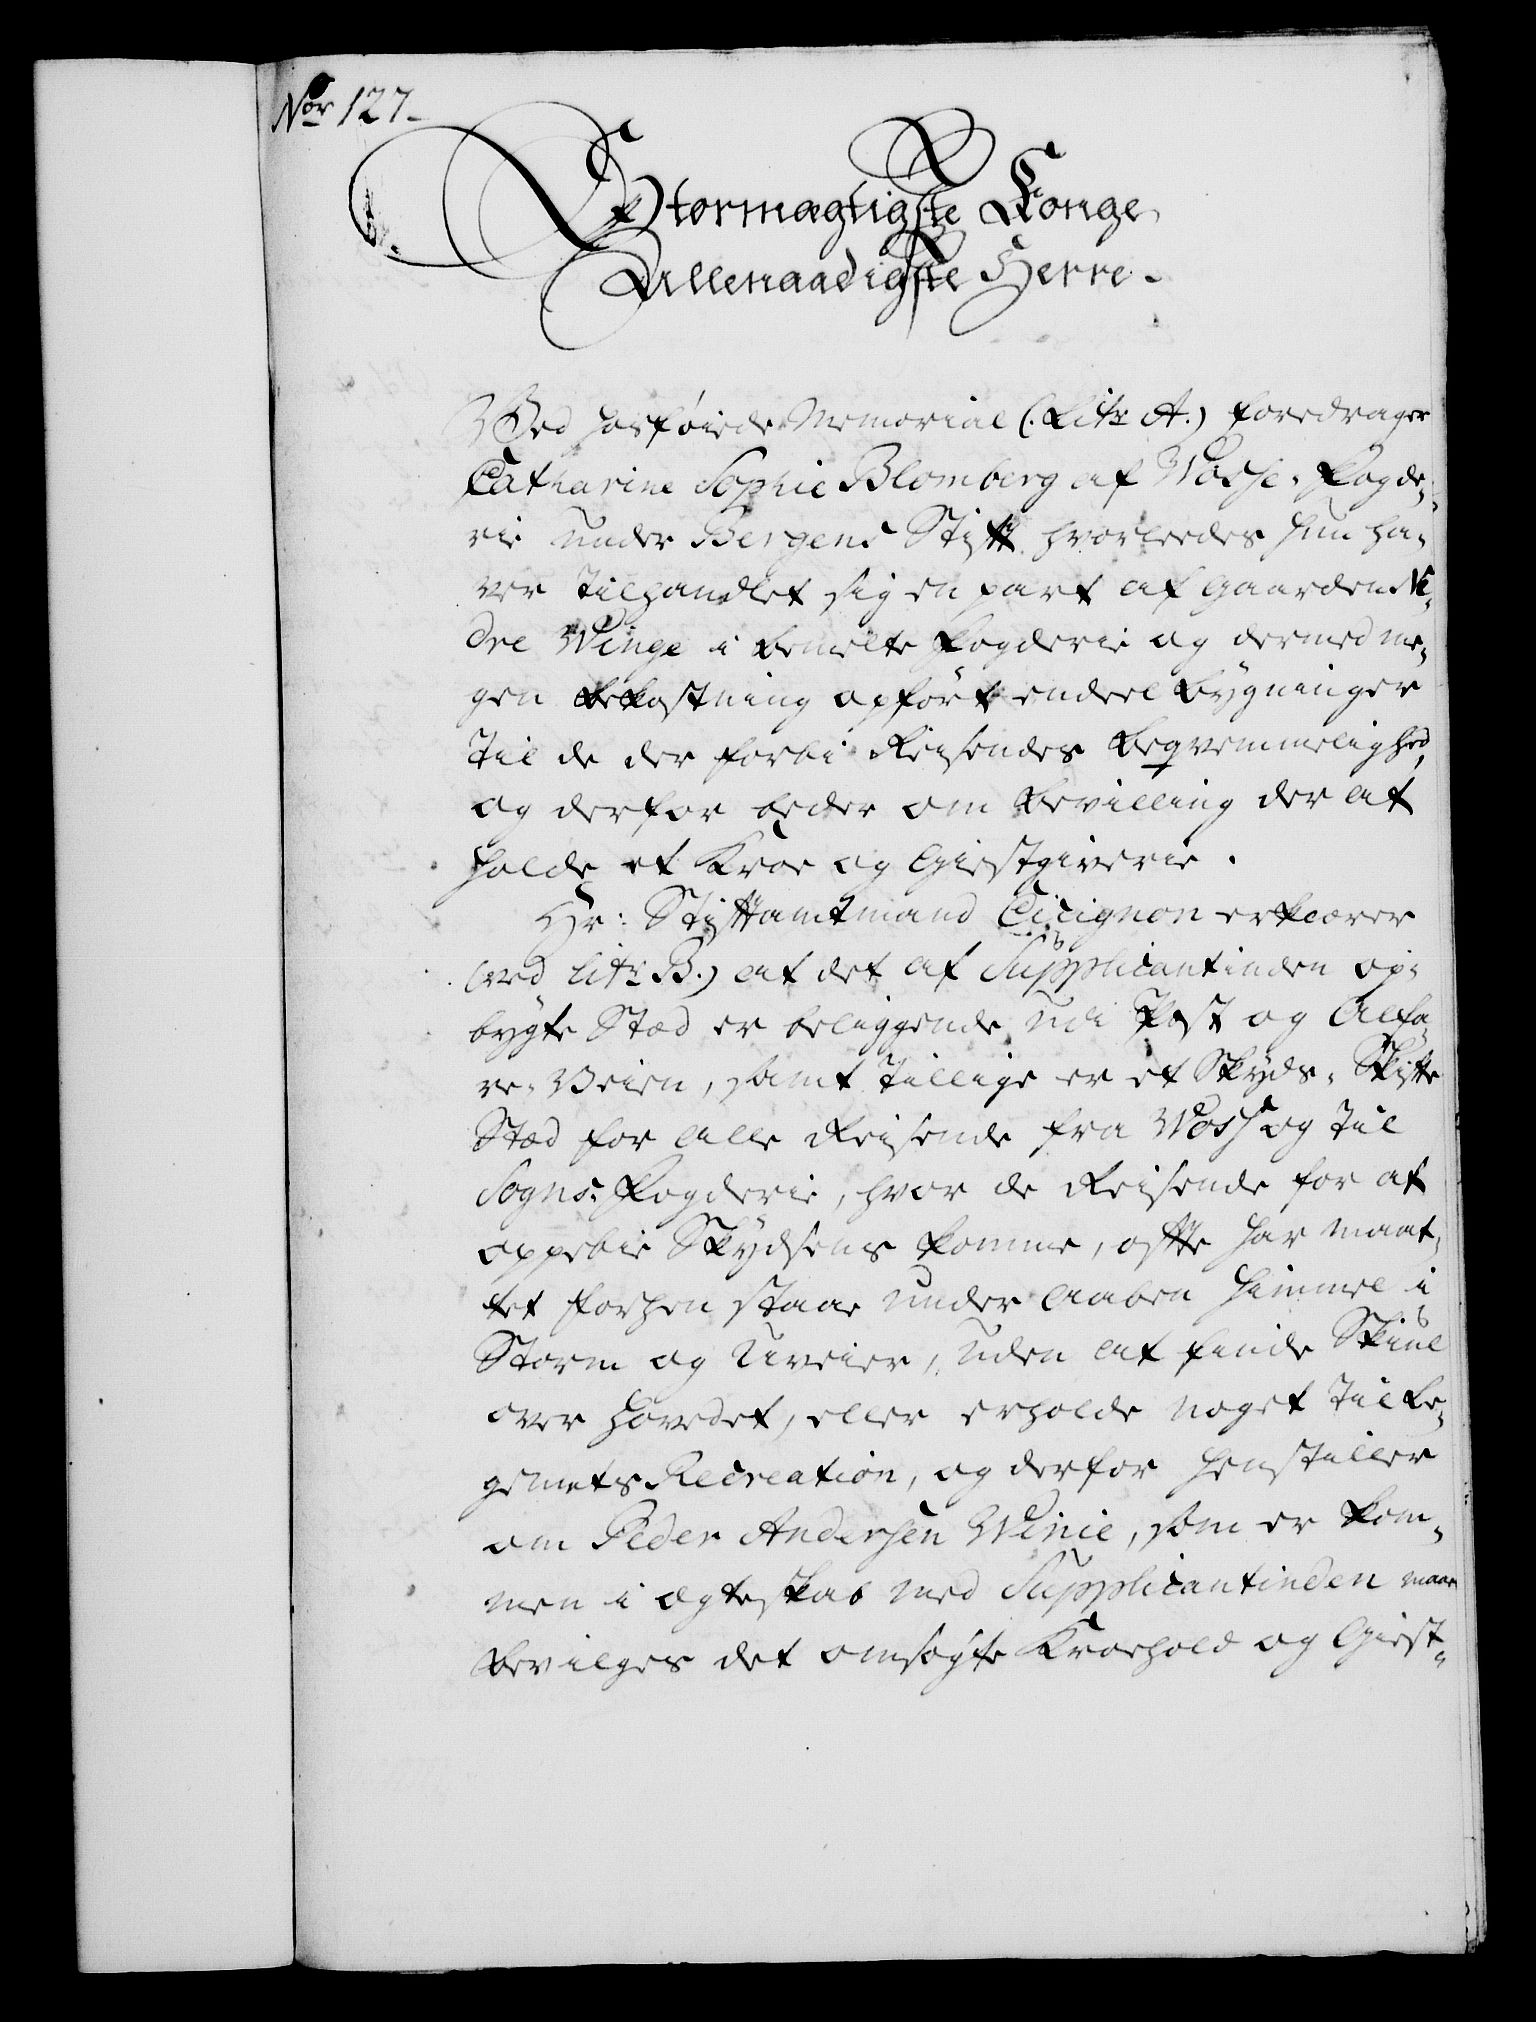 Nor 127.
Stormægtigste Konge,
Allernaadigste Herre.
Ved hosføiede Memorial (: Litr A.) foredrager
Catharine Sophie Blomberg af Wosse-Fogde-
rie under Bergens Stift, hvorleedes hun ha-
ver tilhandlet sig en part af gaarden Ne-
dre Winge i bemelte Fogderie og der med me-
gen bekostning opført endeel bygninger
til de der forbi Reisendes beqvemmelighed,
og derfor beder om bevilling der at
holde et Kroe og Giestgiverie.
Hr: Stiftamtmand Cicignon erklærer
(ved Litr B.) at det af Supplicantinden op-
bygte Stæd er beliggende udi Post og Alfa-
re-Veien, samt tillige er et Skyds-Skifte
Stæd for alle Reisende fra Woss og til
Sogns-Fogderie, hvor de Reisende for at
oppebie Skydsens komme, ofte har maat-
tet forhen staae under aaben himmel i
Storm og Uveier, uden at finde Skiul
over hovedet, eller erholde noget til Le-
gemets Recreation, og derfor henstiller
om Peder Andersen Winie, som er kom-
men i ægteskab med Supplicantinden maae
bevilges det omsøgte Kroehold og Giest-